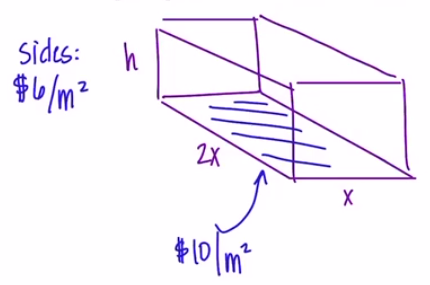 sides:
$6/m²
h
2x
x
$10/m²